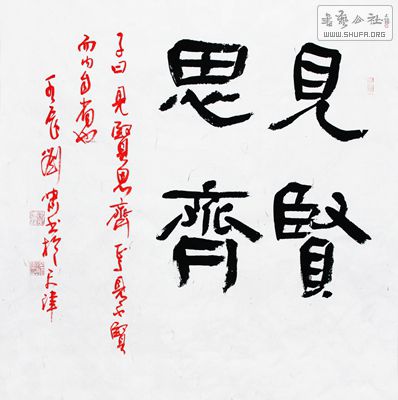 書藝公社
WWW.SHUFA.ORG
見賢
思齊
子曰見賢思齊焉見不賢
而內自省也
辰劉書於天津